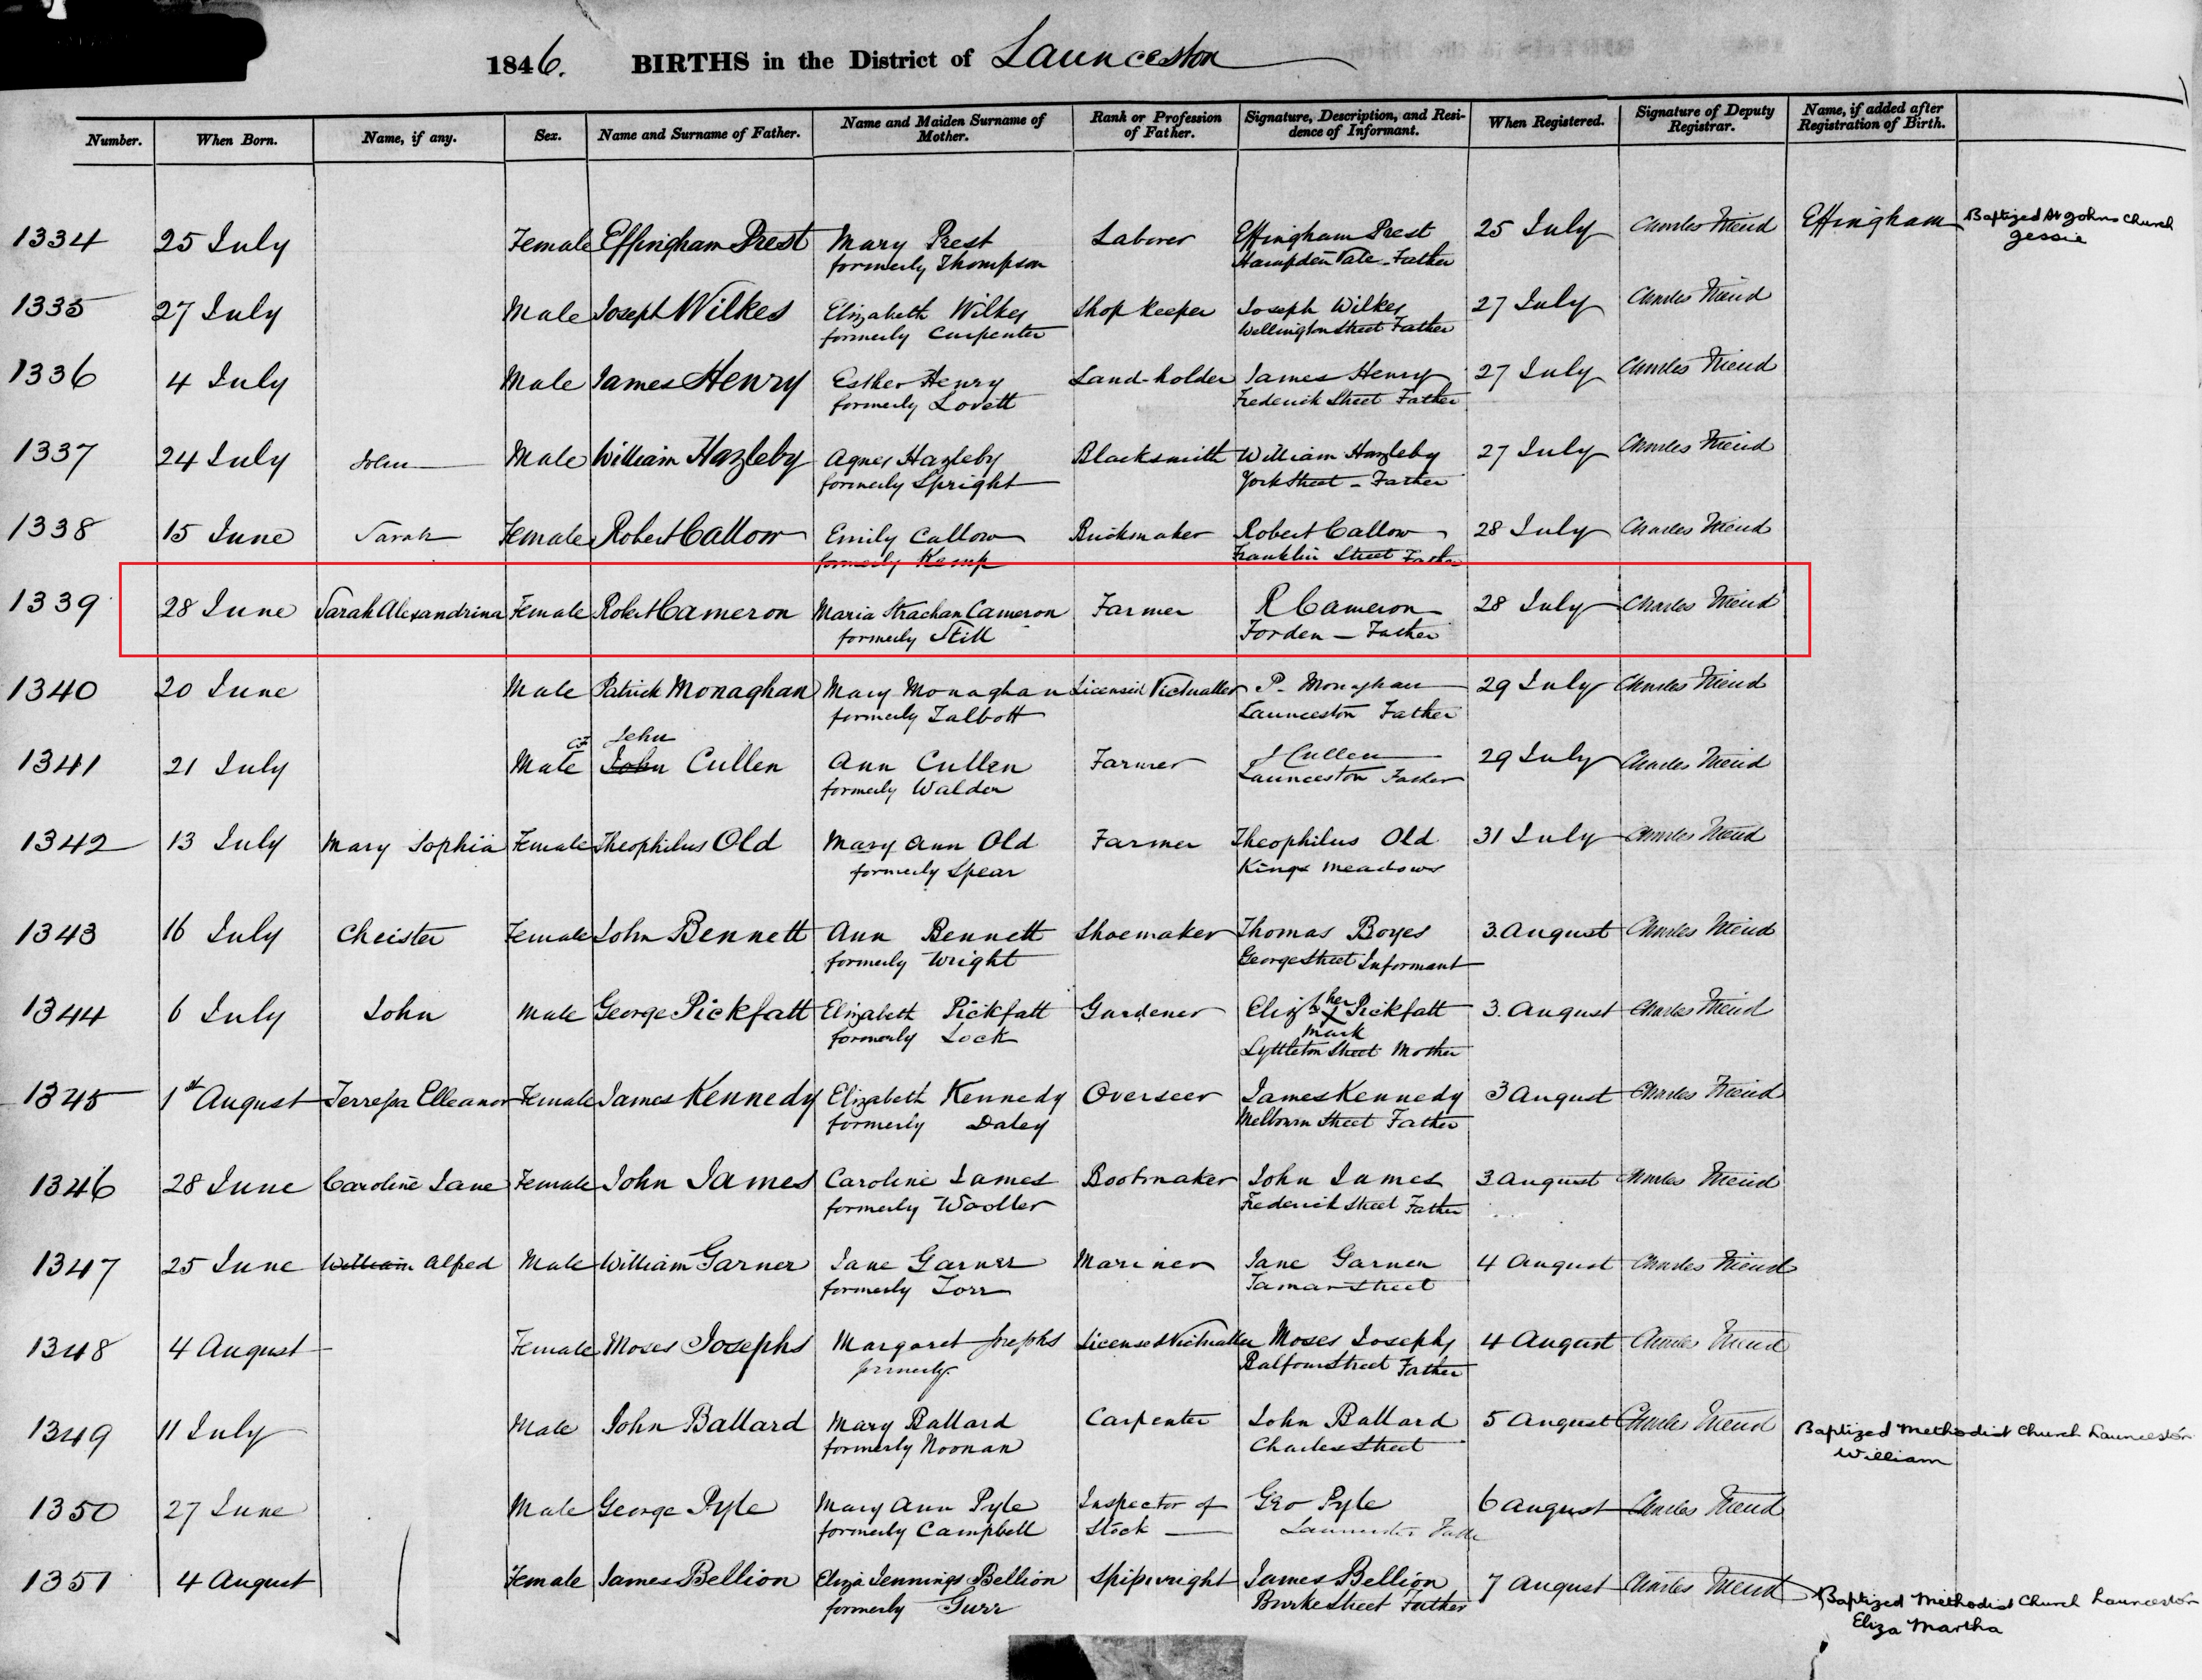 1846. BIRTHS in the District of Launceston
Number. When Born. Name, if any. Sex. Name and Surname of Father. Name and Maiden Surname of Mother. Rank or Profession of Father. Signature, Description, and Residence of Informant. When Registered. Signature of Deputy Registrar. Name, if added after Registration of Birth.
1334 25 July Female Effingham Prest Mary Prest Laborer Effingham Prest 25 July Charles Friend Effingham Baptized St Johns Church
formerly Thompson Hampden Vale - Father Jessie
1335 27 July Male Joseph Wilkes Elizabeth Wilkes Shop Keeper Joseph Wilkes 27 July Charles Friend
formerly Carpenter Wellington Street Father
1336 4 July Male James Henry Esther Henry Land-holder James Henry 27 July Charles Friend
formerly Lovett Frederick Street Father
1337 24 July John Male William Hazleby Agnes Hazleby Blacksmith William Hazleby 27 July Charles Friend
formerly Spright York Street - Father
1338 15 June Sarah Female Robert Callow Emily Callow Brickmaker Robert Callow 28 July Charles Friend
formerly Kemp Franklin Street Father
1339 28 June Sarah Alexandrina Female Robert Cameron Maria Strachan Cameron Farmer R Cameron 28 July Charles Friend
formerly Still Forden - Father
1340 20 June Male Patrick Monaghan Mary Monaghan Licensed Victualler P. Monaghan 29 July Charles Friend
formerly Talbott Launceston Father
John
1341 21 July Male John Cullen Ann Cullen Farmer J Cullen 29 July Charles Friend
formerly Walden Launceston Father
1342 13 July Mary Sophia Female Theophilus Old Mary Ann Old Farmer Theophilus Old 31 July Charles Friend
formerly Spear Kings Meadows
1343 16 July Cheister Female John Bennett Ann Bennett Shoemaker Thomas Boyes 3. August Charles Friend
formerly Wright George Street Informant
1344 6 July John Male George Pickfatt Elizabeth Pickfatt Gardener Elizth her X Pickfatt 3. August Charles Friend
formerly Lock mark
Lyttleton Street Mother
1345 1st August Terresa Elleanor Female James Kennedy Elizabeth Kennedy Overseer James Kennedy 3 August Charles Friend
formerly Daley Melbourn Street Father
1346 28 June Caroline Jane Female John James Caroline James Bootmaker John James 3 August Charles Friend
formerly Woodler Frederick Street Father
1347 25 June William Alfred Male William Garner Jane Garner Mariner Jane Garner 4 August Charles Friend
formerly Torr Tamar Street
1348 4 August Female Moses Josephs Margaret Josephs Licensed Victualler Moses Josephs 4 August Charles Friend
formerly Balfour Street Father
1349 11 July Male John Ballard Mary Ballard Carpenter John Ballard 5 August Charles Friend Baptized Methodist Church Launceston
formerly Noonan Charles Street William
1350 27 June Male George Pyle Mary Ann Pyle Inspector of Geo Pyle 6 August Charles Friend
formerly Campbell Stock Launceston Father
1351 4 August Female James Bellion Eliza Jennings Bellion Shipwright James Bellion 7 August Charles Friend Baptized Methodist Church Launceston
formerly Gurr Burke Street Father Eliza Martha